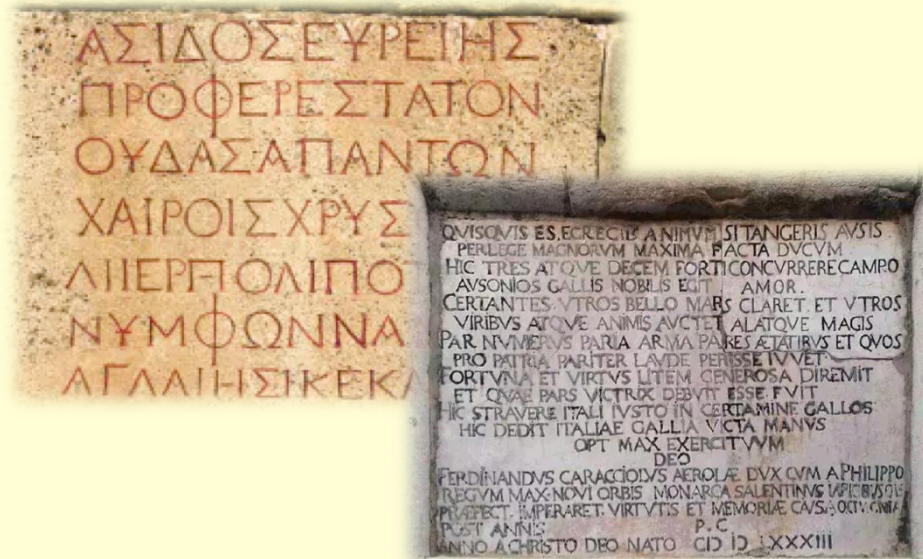 ΑΣΙΔΟΣΕΥΡΕΙΗΣ
ΠΡΟΦΕΡΕΣΤΑΤΟΝ
ΟΥΔΑΣΑΠΑΝΤΩΝ
ΧΑΙΡΟΙΣΧΡΥΣ
ΛΙΙΕΡΗΠΟΛΙΠΟ
ΝΥΜΦΩΝΝΑ
ΑΓΛΑΙΗΣΙΚΕΚΑ
QVISQVIS ES, EGREGIIS ANIMVM SI TANGERIS AVSIS
PERLEGE MAGNORVM MAXIMA FACTA DVCVM
HIC TRES ATQVE DECEM FORTI CONCVRRERE CAMPO
AVSONIOS GALLIS NOBILIS EGIT AMOR.
CERTANTES VTROS BELLO MARS CLARET ET VTROS
VIRIBVS ATQVE ANIMIS AVCTET ALATQVE MAGIS
PAR NVMERVS PARIA ARMA PARES ÆTATIBVS ET QVOS
PRO PATRIA PARITER LAVDE PERISSE IVVET
FORTVNA ET VIRTVS LITEM GENEROSA DIREMIT
ET QVAE PARS VICTRIX DEBVIT ESSE FVIT
HIC STRAVERE ITALI IVSTO IN CERTAMINE GALLOS
HIC DEDIT ITALIAE GALLIA VICTA MANVS
OPT MAX EXERCITVVM
DEO
FERDINANDVS CARACCIOLVS AEROLÆ DVX CVM A PHILIPPO
REGVM MAX NOVI ORBIS MONARCA SALENTINVS
PRÆFECT. IMPERARET VIRTVTIS ET MEMORIÆ CAVSA
POST ANNIS P. C.
ANNO A CHRISTO DEO NATO CIƆ IƆ LXXXIII